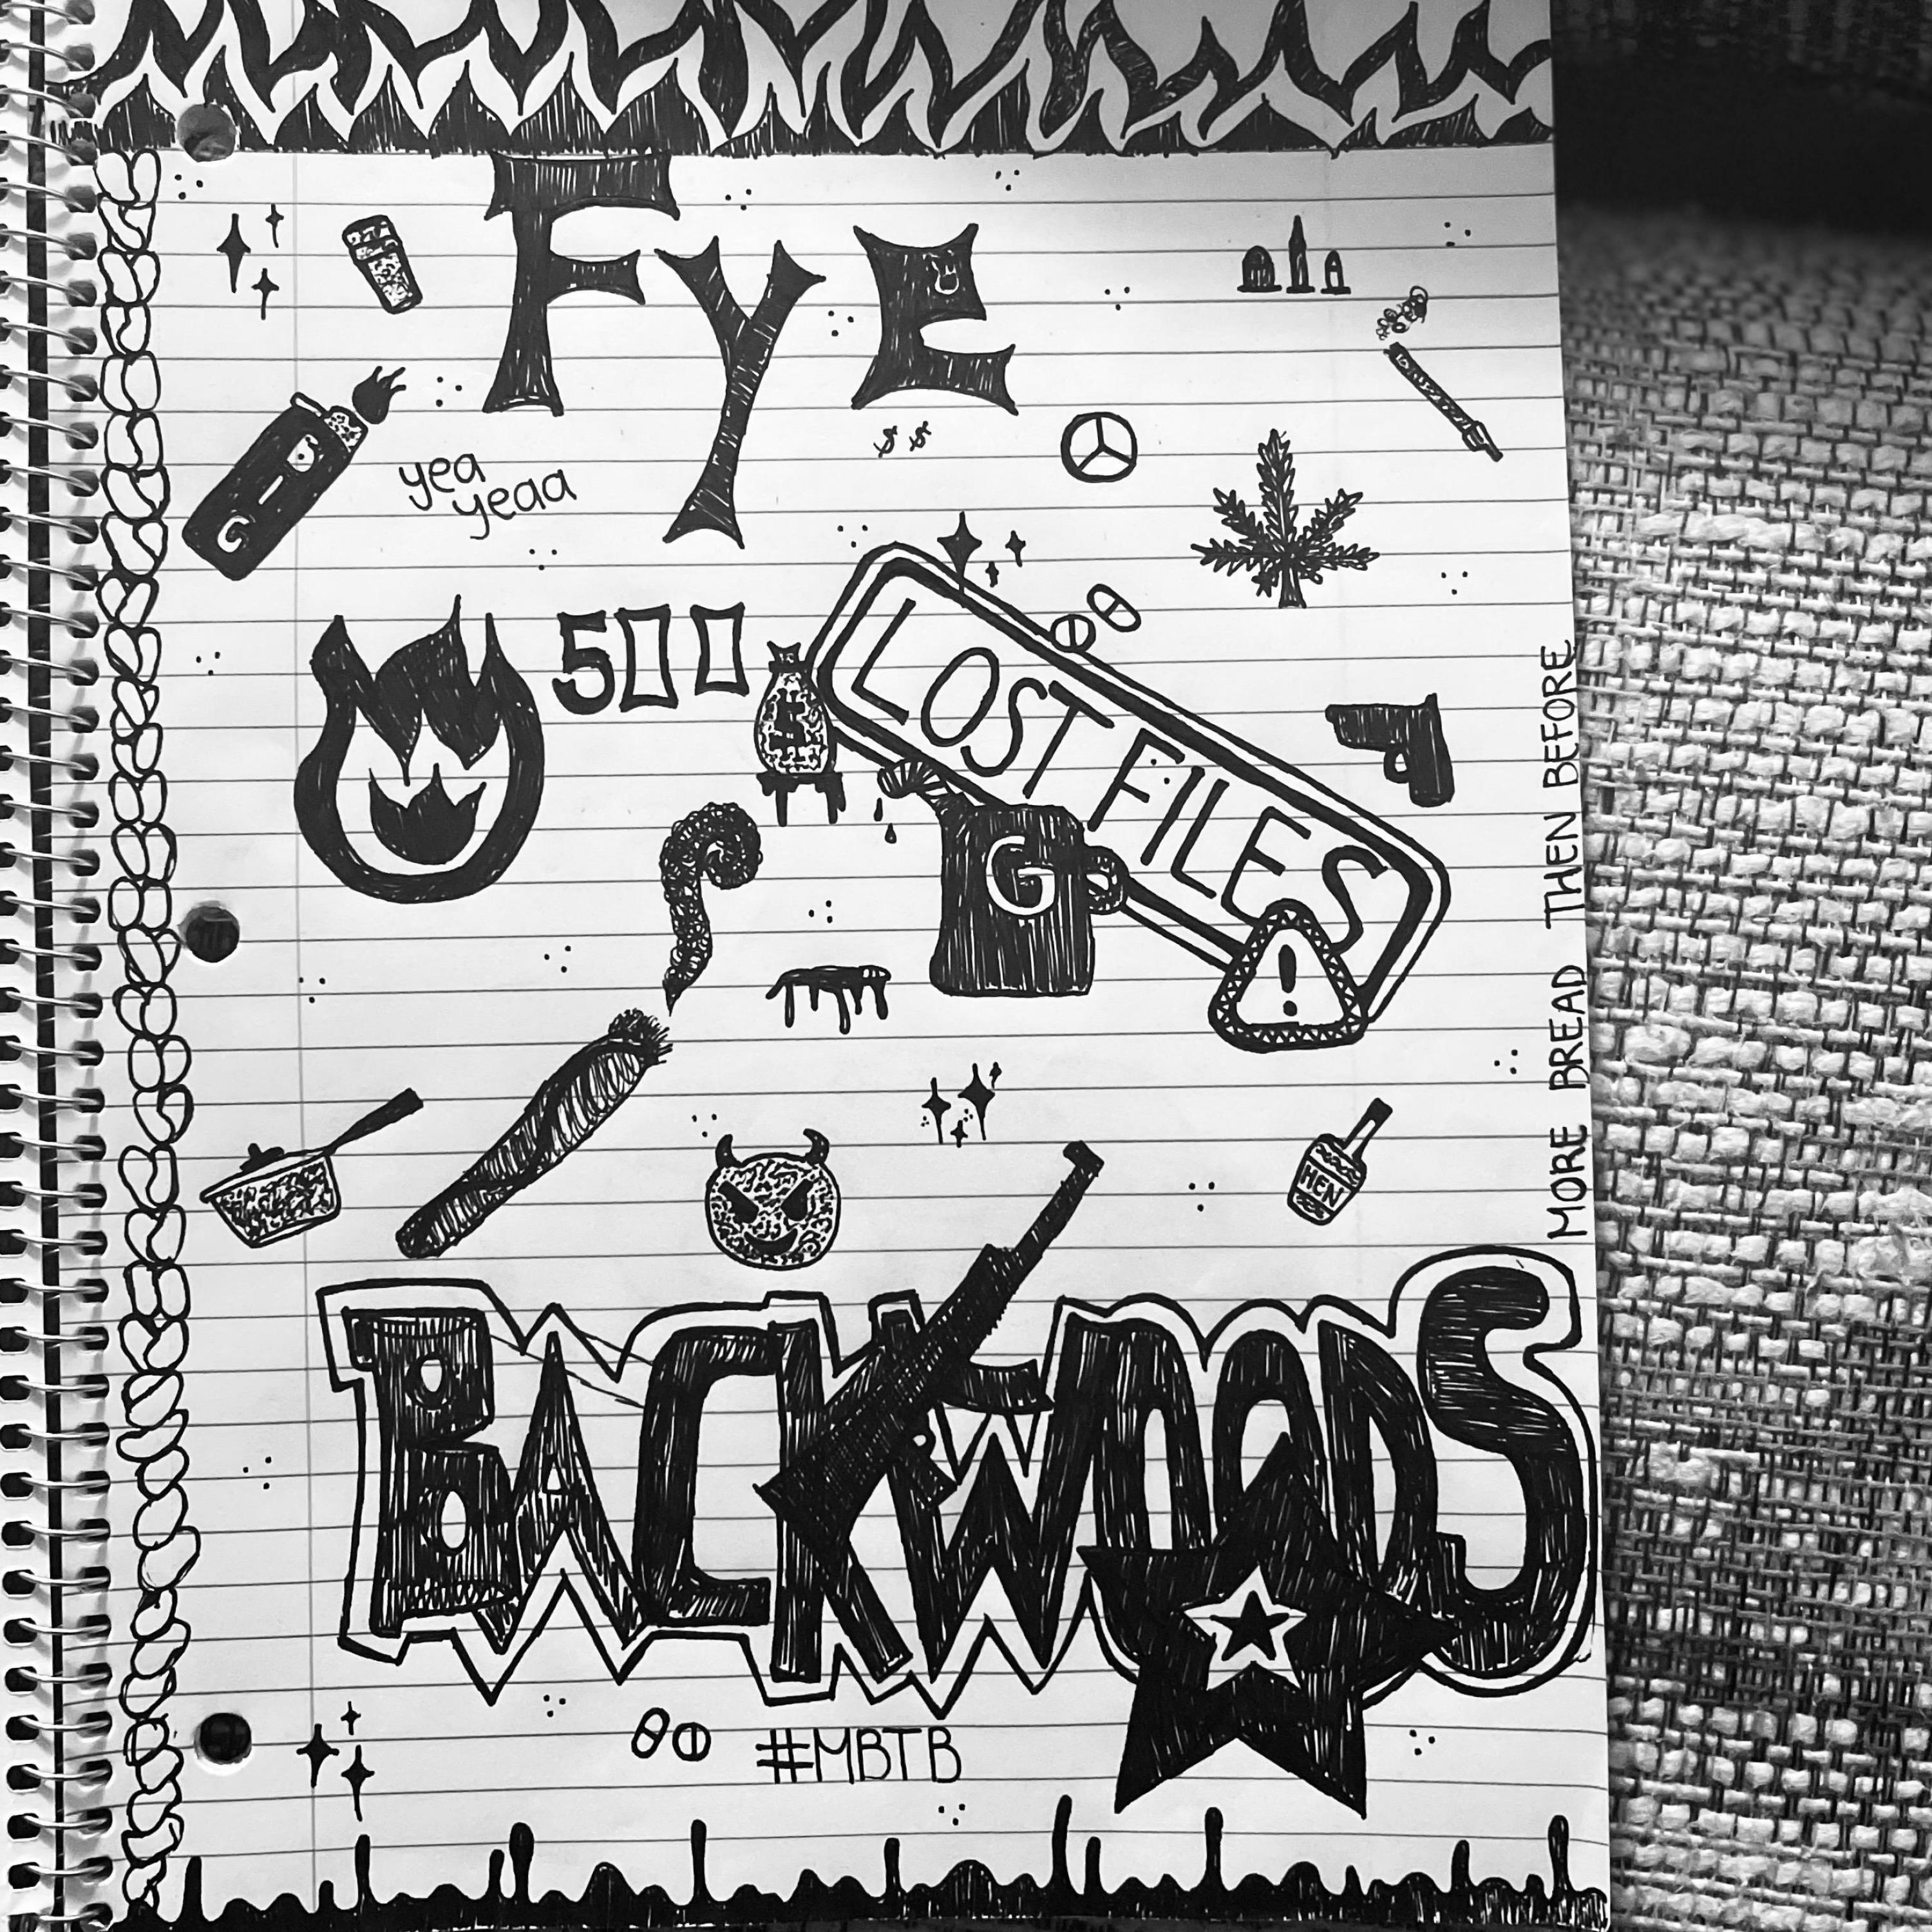 Fye
yea
yeaa
$$
500
$
LOST FILES
G
G
!
HEN
MORE BREAD THEN BEFORE
BACKWOODS
#MBTB